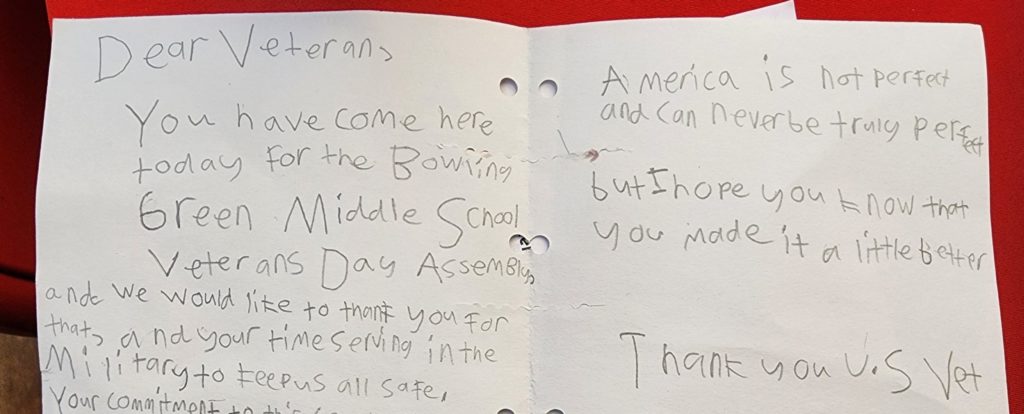 Dear Veterans
You have come here
today for the Bowling
Green Middle School
Veterans Day Assembly,
and we would like to thank you for
that, and your time serving in the
Military to keep us all safe,
Your commitment to this
America is not perfect
and can never be truly perfect
but I hope you know that
you made it a little better
Thank you U.S Vet